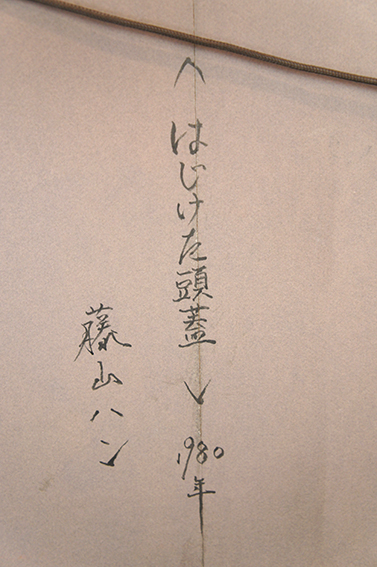 〈はじけた頭蓋〉1980年
藤山ハン